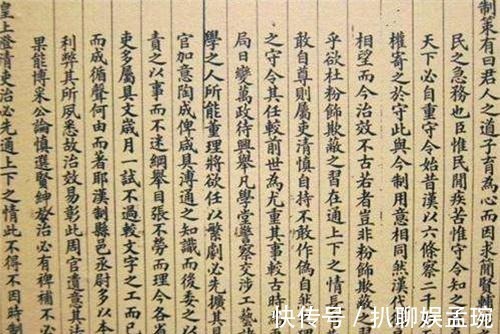 制策有曰君人之道子育為心而因求簡賢輔
民之急務也臣惟民閒疾苦惟守令知之
天下必自重守令始昔漢以六條察二千
權寄之於守此與今制用意相同然漢代
相望而今治效不古若者豈非粉飾欺敵
乎欲杜粉飾欺敵之習在通上下之情長
之守令其任較前世為尤重其事較古時
敢自尊則屬吏清慎自持不敢作偽自然
局日變萬政待興舉凡學堂警察交涉工藝
學之人所能重理將欲任以繁劇必先擴其
官加意陶成俾咸具溥通之知識而後委之以
責之以事而不迷綱舉目張不勞而理今各省
吏多屬具文歲月一試不過較文字之工而已
而成循聲何由而著耶漢制縣邑丞尉多以本
利弊其所夙悉故治效易彰此周官遺意其法
果能博采公論慎選賢紳於治必有稗補不必
皇上澄清吏治必先通上下之情此不得不因時制
快传号/扒聊娱孟琬